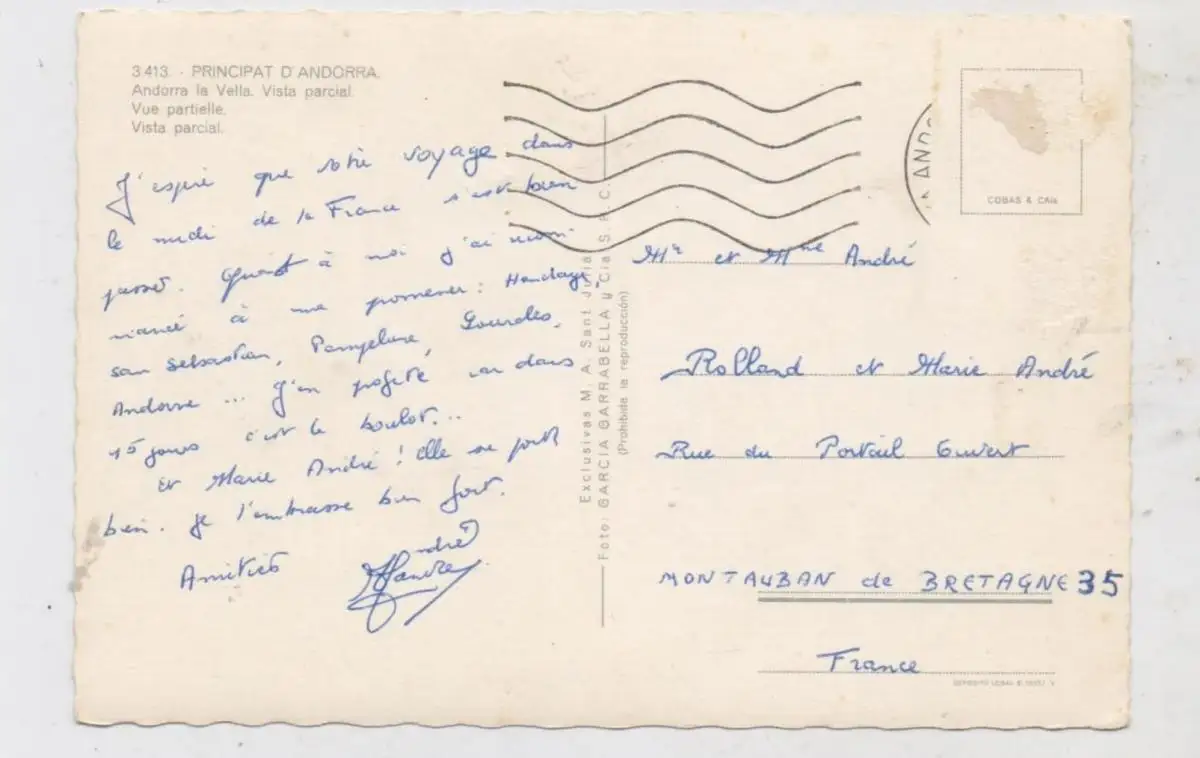 3.413. - PRINCIPAT D'ANDORRA.
Andorra la Vella. Vista parcial.
Vue partielle.
Vista parcial.
J'espère que votre voyage dans
le midi de la France s'est bien
passé. Quant à moi j'ai
à me promener : Hendaye,
san Sebastian, Pampelune, Lourdes,
Andorre ... J'en profite car dans
15 jours c'est le boulot...
et Marie André ! elle se porte
bien. Je l'embrasse bien fort.
Amitiés
Exclusivas M. A. Sant Julia
Foto: GARCIA GARRABELLA y Cia S. R. C.
(Prohibida la reproducción)
COBAS & CAIA
Mr et Mme André
Rolland et Marie André
Rue du Portail Ouvert
MONTAUBAN de BRETAGNE 35
France